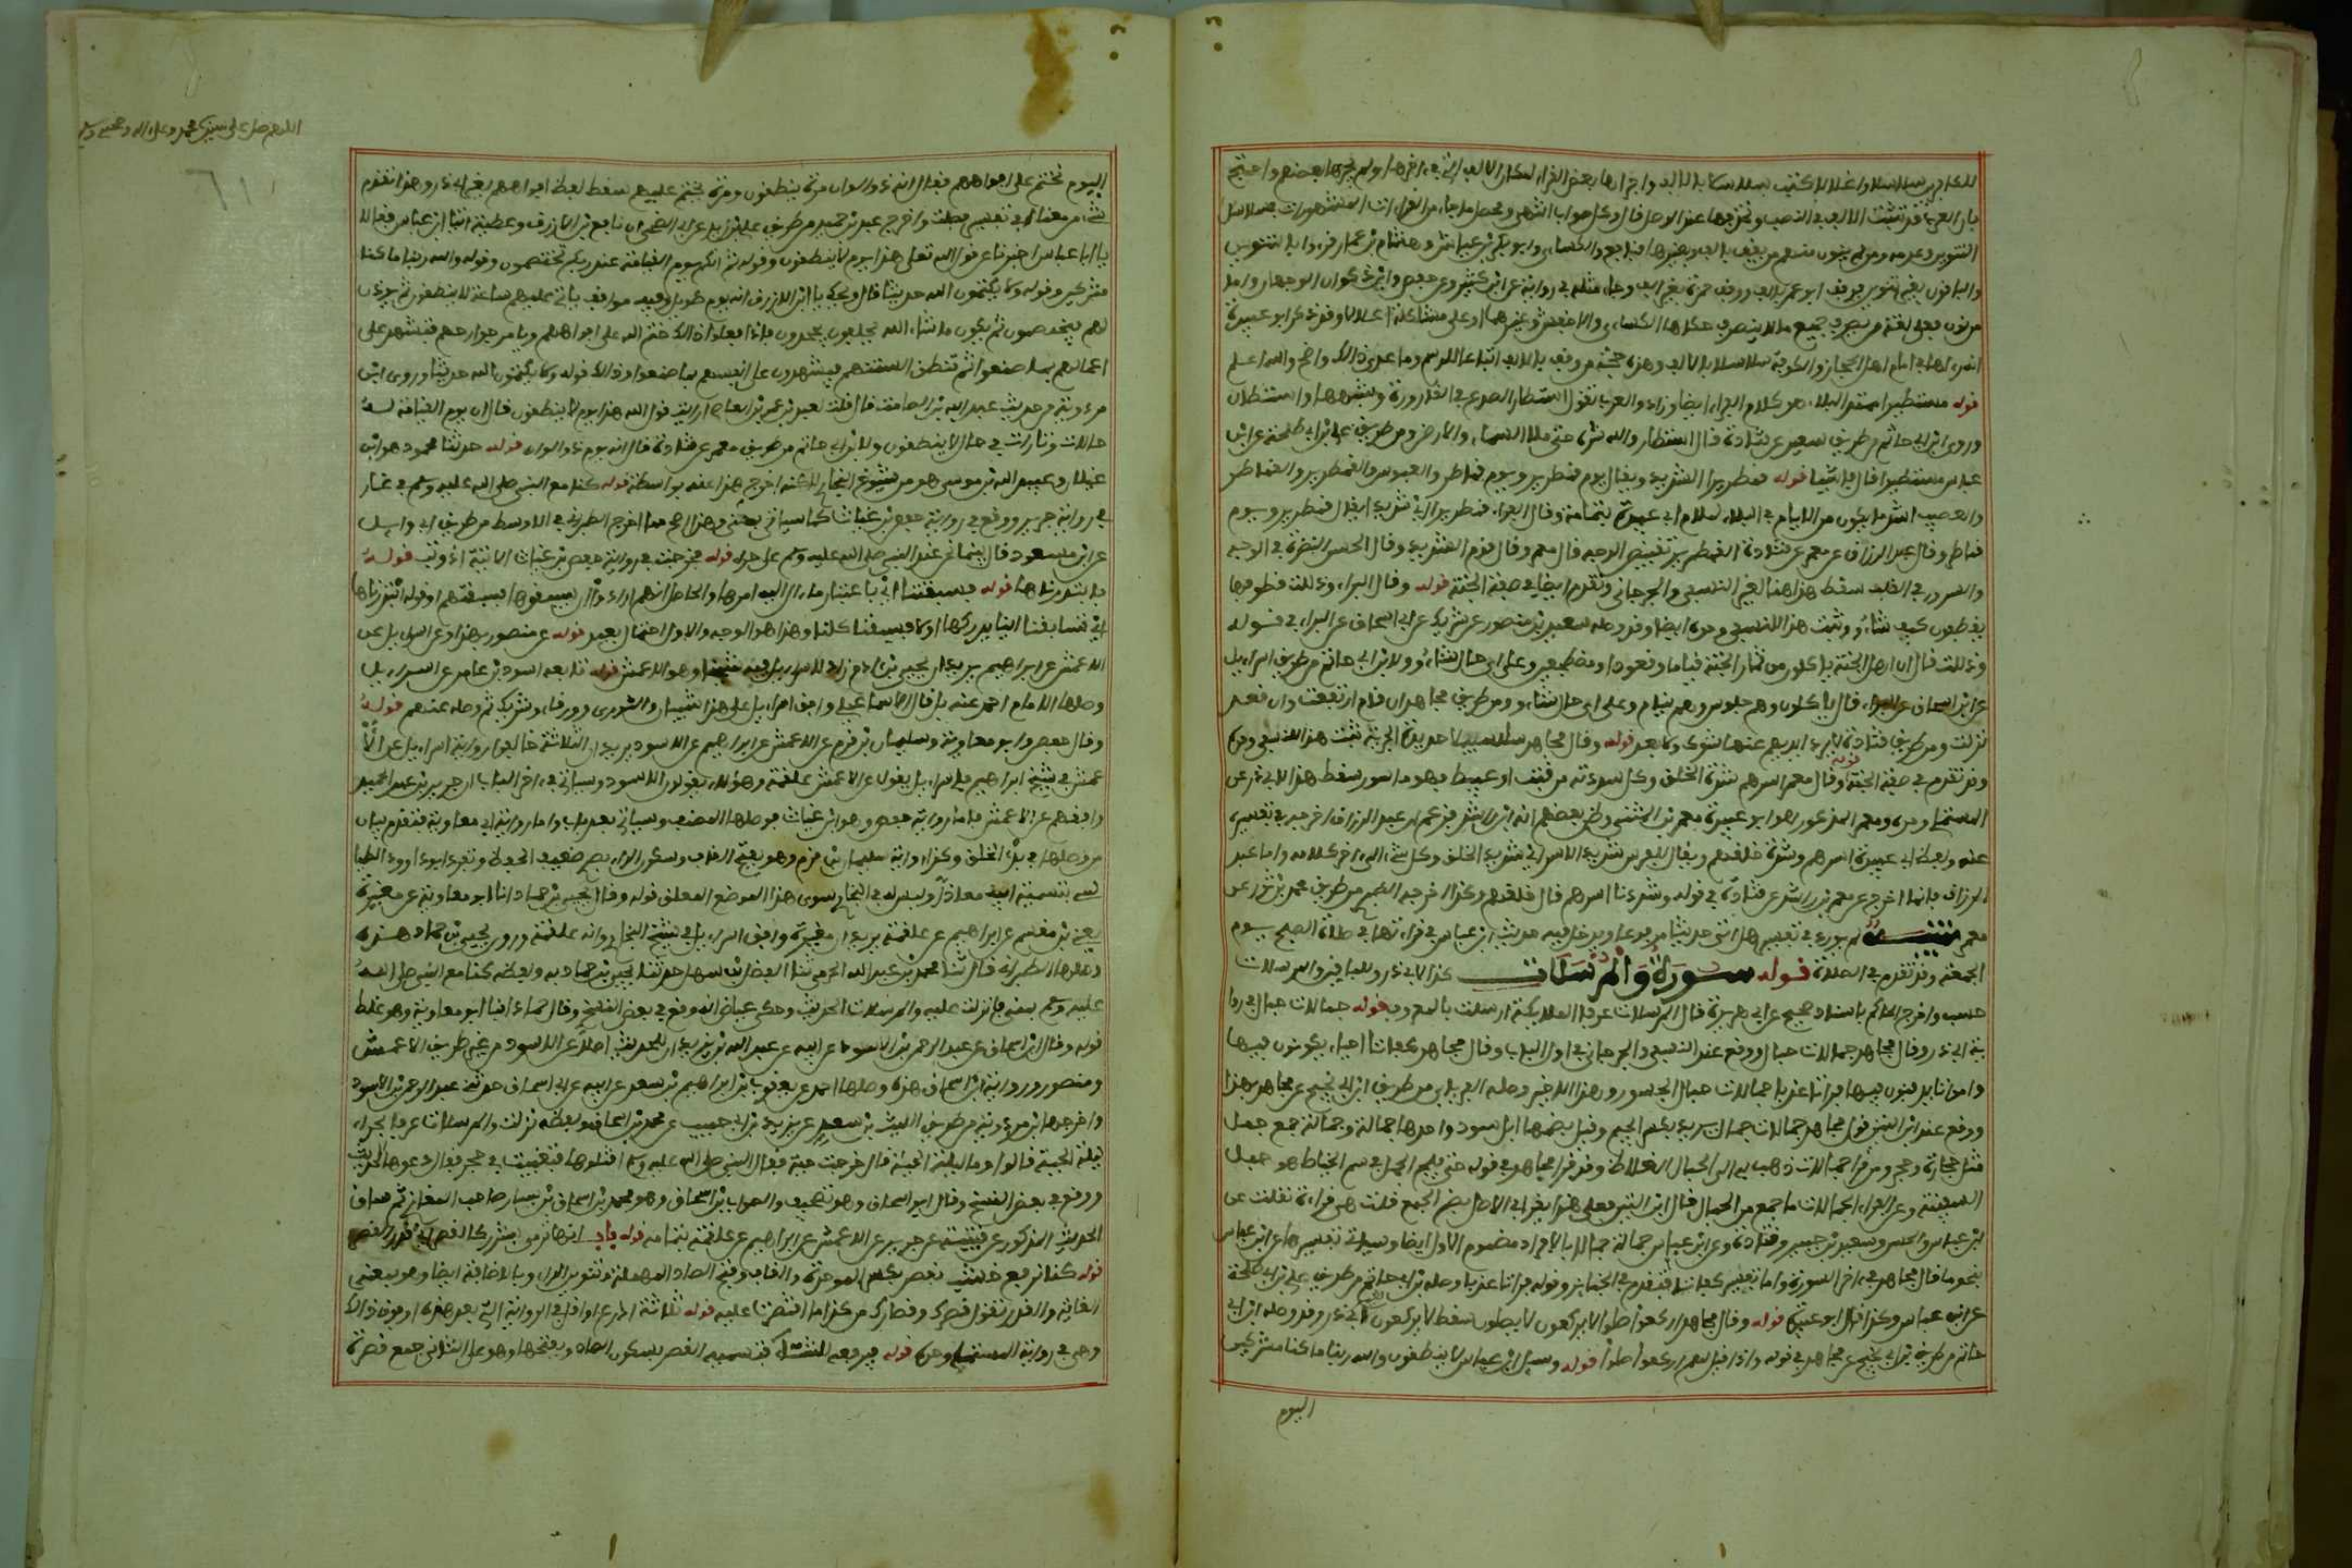 للكافرين سلاسلا واغلالا كتبت سلاسلا بالالف واجراها بعض القراء لمكان الالف التي في اخرها ولم يجرها بعضهم واحتج
بان العرب قد تثبت الالف في النصب وتحذفها عند الوصل قال وكل صواب انتهى ومحصل ما جاء من القراءات المشهورات في سلاسل
التنوين وعدمه ومن لم ينون منهم من يقف بالف وبغيرها فنافع والكسائي وابو بكر بن عياش وهشام بن عمار قرؤا بالتنوين
والباقون بغير تنوين فوقف ابو عمرو بالالف ووقف حمزة بغير الف وجاء مثله في رواية عن ابن كثير وعن حفص وابن ذكوان الوجهان واما
من نون فعلى لغة من يصرف جميع ما لا ينصرف حكاها الكسائي والاخفش وغيرهما او على مشاكلة اغلالا وقد ذكر ابو عبيدة
انه راها في امام اهل الحجاز والكوفة سلاسلا بالالف وهذه حجة من وقف بالالف اتباعا للرسم وما عدى ذلك واضح والله اعلم
قوله مستطيرا ممتد البلاء هو كلام الفراء ايضا وزاد والعرب تقول استطار الصدع في القارورة وشبهها واستطال
وروى ابن ابي حاتم من طريق سعيد عن قتادة قال استطار والله شره حتى ملا السماء والارض ومن طريق علي بن ابي طلحة عن ابن
عباس مستطيرا قال فاشيا قوله قمطريرا الشديد ويقال يوم قمطرير ويوم قماطر والعبوس والقمطرير والقماطر
والعصيب اشد ما يكون من الايام في البلاء هو كلام ابي عبيدة بتمامه وقال الفراء قمطريرا اي شديدا يقال قمطرير ويوم
قماطر وقال عبد الرزاق عن معمر عن قتادة القمطرير تقبيض الوجه قال معمر وقال قوم الشديد وقال الحسن النضرة في الوجه
والسرور في القلب سقط هذا هنا لغير النسفي والجرجاني وتقدم ايضا في صفة الجنة قوله وقال البراء وذللت قطوفها
يقطفون كيف شاءوا ثبت هذا للنسفي وحده ايضا وقد وصله سعيد بن منصور عن شريك عن ابي اسحاق عن البراء في قوله
وذللت قال ان اهل الجنة ياكلون من ثمار الجنة قياما وقعودا ومضطجعين وعلى اي حال شاءوا ولابن ابي حاتم من طريق اسرائيل
عن ابي اسحاق عن البراء قال ياكلون وهم جلوس وهم نيام وعلى اي حال شاءوا ومن طريق مجاهد ان قام ارتفعت وان قعد
نزلت ومن طريق قتادة لا يرد ايديهم عنها شوك ولا بعد قوله وقال مجاهد سلسبيلا حديدة الجرية ثبت هذا للنسفي وحده
وقد تقدم في صفة الجنة قوله وقال معمر اسرهم شدة الخلق وكل شيء شددته من قتب او غبيط فهو ماسور سقط هذا لابي ذر عن
المستملي وحده ومعمر المذكور هو ابو عبيدة معمر بن المثنى وظن بعضهم انه ابن راشد فزعم ان عبد الرزاق اخرجه في تفسيره
عنه ولفظ ابي عبيدة اسرهم وشدة خلقهم ويقال للفرس شديد الاسر اي شديد الخلق وكل شيء الى اخر كلامه واما عبد
الرزاق فانما اخرج عن معمر بن راشد عن قتادة في قوله وشددنا اسرهم قال خلقهم وكذا اخرجه الطبري من طريق محمد بن ثور عن
معمر تنبيه لم يورد في تفسير هل اتى حديثا مرفوعا ويدخل فيه حديث ابن عباس في قراءتها في صلاة الصبح يوم
الجمعة وقد تقدم في الصلاة قوله سورة والمرسلات كذا لابي ذر وللباقين والمرسلات
حسب واخرج الحاكم باسناد صحيح عن ابي هريرة قال المرسلات عرفا الملائكة ارسلت بالمعروف قوله جمالات حبال في روا
ية ابي ذر وقال مجاهد جمالات حبال ووقع عند النسفي والجرجاني في اول الباب وقال مجاهد كفاتا احياء يكونون فيها
وامواتا يدفنون فيها فراتا عذبا جمالات حبال الجسور وهذا الاخير وصله الفريابي من طريق ابن ابي نجيح عن مجاهد بهذا
ووقع عند ابن التين قول مجاهد جمالات جمال يريد بكسر الجيم وقيل بضمها ابل سود واحدها جمالة وجمالة جمع جمل
مثل حجارة وحجر ومن قرا جمالات ذهب به الى الحبال الغلاظ وقد قرا مجاهد في قوله حتى يلج الجمل في سم الخياط هو حبل
السفينة وعن الفراء الجمالات ما جمع من الحبال قال ابن التين فعلى هذا يقرا في الاصل بضم الجمع قلت هي قراءة نقلت عن
ابن عباس والحسن وسعيد بن جبير وقتادة وعن ابن عباس جمالة جمالا بالافراد مضموم الاول ايضا وسياتي تفسيرها عن ابن عباس
بنحو ما قال مجاهد في اخر السورة واما تفسير كفاتا فتقدم في الجنائز وقوله فراتا عذبا وصله ابن ابي حاتم من طريق علي بن ابي طلحة
عن ابن عباس وكذا قال ابو عبيدة قوله وقال مجاهد اركعوا صلوا لا يركعون لا يصلون سقط لا يركعون لغير ابي ذر وقد وصله ابن ابي
حاتم من طريق ابن ابي نجيح عن مجاهد في قوله واذا قيل لهم اركعوا صلوا قوله وسيل ابن عباس لا ينطقون والله ربنا ما كنا مشركين
اليوم
اللهم صل على سيدنا محمد وعلى اله وصحبه وسلم
اليوم نختم على افواههم فقال انه ذو الوان مرة ينطقون ومرة يختم عليهم سقط لفظ على افواههم لغير ابي ذر وهذا تقدم
شيء من معناه في تفسير فصلت واخرج عبد بن حميد من طريق علي بن زيد عن ابي الضحى ان نافع بن الازرق وعطية اتيا ابن عباس فقالا
يا ابا عباس اخبرنا عن قول الله تعلى هذا يوم لا ينطقون وقوله ثم انكم يوم القيامة عند ربكم تختصمون وقوله والله ربنا ما كنا
مشركين وقوله ولا يكتمون الله حديثا قال ويحك يا ابن الازرق انه يوم طويل وفيه مواقف ياتي عليهم ساعة لا ينطقون ثم يوذن
لهم فيختصمون ثم يكون ما شاء الله يحلفون ويجحدون فاذا فعلوا ذلك ختم الله على افواههم ويامر جوارحهم فتشهد على
اعمالهم بما صنعوا ثم تنطق السنتهم فيشهدون على انفسهم بما صنعوا وذلك قوله ولا يكتمون الله حديثا وروى ابن
مردويه من حديث عبد الله بن الصامت قال قلت لعبد الله بن عمرو بن العاص ارايت قول الله هذا يوم لا ينطقون قال ان يوم القيامة له
حالات وتارات في حال لا ينطقون ولابن ابي حاتم من طريق معمر عن قتادة قال انه يوم ذو الوان قوله حدثنا محمود هو ابن
غيلان وعبيد الله بن موسى هو من شيوخ البخاري لكنه اخرج هذا عنه بواسطة قوله كنا مع النبي صلى الله عليه وسلم في غار
في رواية جرير ووقع في رواية حفص بن غياث كما سياتي بمنى وهذا اصح مما اخرج الطبراني في الاوسط من طريق ابي وايل
عن ابن مسعود قال بينما نحن عند النبي صلى الله عليه وسلم على حراء قوله فخرجت في رواية حفص بن غياث الاتية اذ وثبت قوله
فابتدرناها قوله فسبقتنا اي باعتبار ما ءال اليه امرها والحاصل انهم ارادوا ان يسبقوها فسبقتهم وقوله ابتدرناها
اي تسابقنا اينا يدركها اولا فسبقتنا كلنا وهذا هو الوجه والاول احتمال بعيد قوله عن منصور بهذا وعن اسرائيل عن
الاعمش عن ابراهيم يريد ان يحيى بن ءادم زاد لاسرائيل فيه شيخا وهو الاعمش قوله تابعه اسود بن عامر عن اسرائيل
وصلها الامام احمد عنه به قال الاسماعيلي وافق اسرائيل على هذا شيبان والثوري وورقاء وشريك ثم وصله عنهم قوله
وقال حفص وابو معاوية وسليمان بن قرم عن الاعمش عن ابراهيم عن الاسود يريد ان الثلاثة خالفوا رواية اسرائيل عن الا
عمش في شيخ ابراهيم فاسرائيل يقول عن الاعمش علقمة وهؤلاء يقولون الاسود وسياتي في ءاخر الباب ان جرير بن عبد الحميد
وافقهم عن الاعمش فاما رواية حفص وهو ابن غياث فوصلها المصنف وسياتي بعد باب واما رواية ابي معاوية فتقدم بيان
من وصلها في بدء الخلق وكذا رواية سليمان بن قرم وهو بفتح القاف وسكون الراء بصري ضعيف الحفظ وتفرد ابو داوود الطيا
لسي بتسمية ابيه معاذا وليس له في البخاري سوى هذا الموضع المعلق قوله وقال يحيى بن حماد انا ابو معاوية عن مغيرة
يعني ابن مقسم عن ابراهيم عن علقمة يريد ان مغيرة وافق اسرائيل في شيخ ابراهيم وانه علقمة ورواية يحيى بن حماد هذه
وصلها الطبراني قال ثنا محمد بن عبد الله الحضرمي ثنا الفضل بن سهل حدثنا يحيى بن حماد به ولفظه كنا مع النبي صلى الله
عليه وسلم بمنى فانزلت عليه والمرسلات الحديث وحكى عياض انه وقع في بعض النسخ وقال حماد انبا ابو معاوية وهو غلط
قوله وقال ابن اسحاق عن عبد الرحمن بن الاسود عن ابيه عن عبد الله يريد ان للحديث اصلا عن الاسود من غير طريق الاعمش
ومنصور ورواية ابن اسحاق هذه وصلها احمد عن يعقوب بن ابراهيم بن سعد عن ابيه عن ابن اسحاق حدثني عبد الرحمن بن الاسود
واخرجها ابن مردويه من طريق الليث بن سعد عن يزيد بن ابي حبيب عن محمد بن اسحاق ولفظه نزلت والمرسلات عرفا بحراء
ليلة الحية قالوا وما ليلة الحية قال خرجت حية فقال النبي صلى الله عليه وسلم اقتلوها فتغيبت في جحر فقال دعوها الحديث
ووقع في بعض النسخ وقال ابو اسحاق وهو تصحيف والصواب ابن اسحاق وهو محمد بن اسحاق بن يسار صاحب المغازي ثم ساق
الحديث المذكور عن قتيبة عن جرير عن الاعمش عن ابراهيم عن علقمة بتمامه قوله باب انها ترمي بشرر كالقصر اي قدر القصر
قوله كنا نرفع خشب بقصر بكسر الموحدة والقاف وفتح الصاد المهملة وتنوين الراء وبالاضافة ايضا وهو بمعنى
الغاية والقدر تقول قصرك وقصارك من كذا ما اقتصرت عليه قوله ثلاثة اذرع او اقل في الرواية التي بعد هذه او فوق ذلك
وهي في رواية المستملي وحده قوله فنرفعه للشتاء فنسميه القصر بسكون الصاد وبفتحها وهو على الثاني جمع قصرة